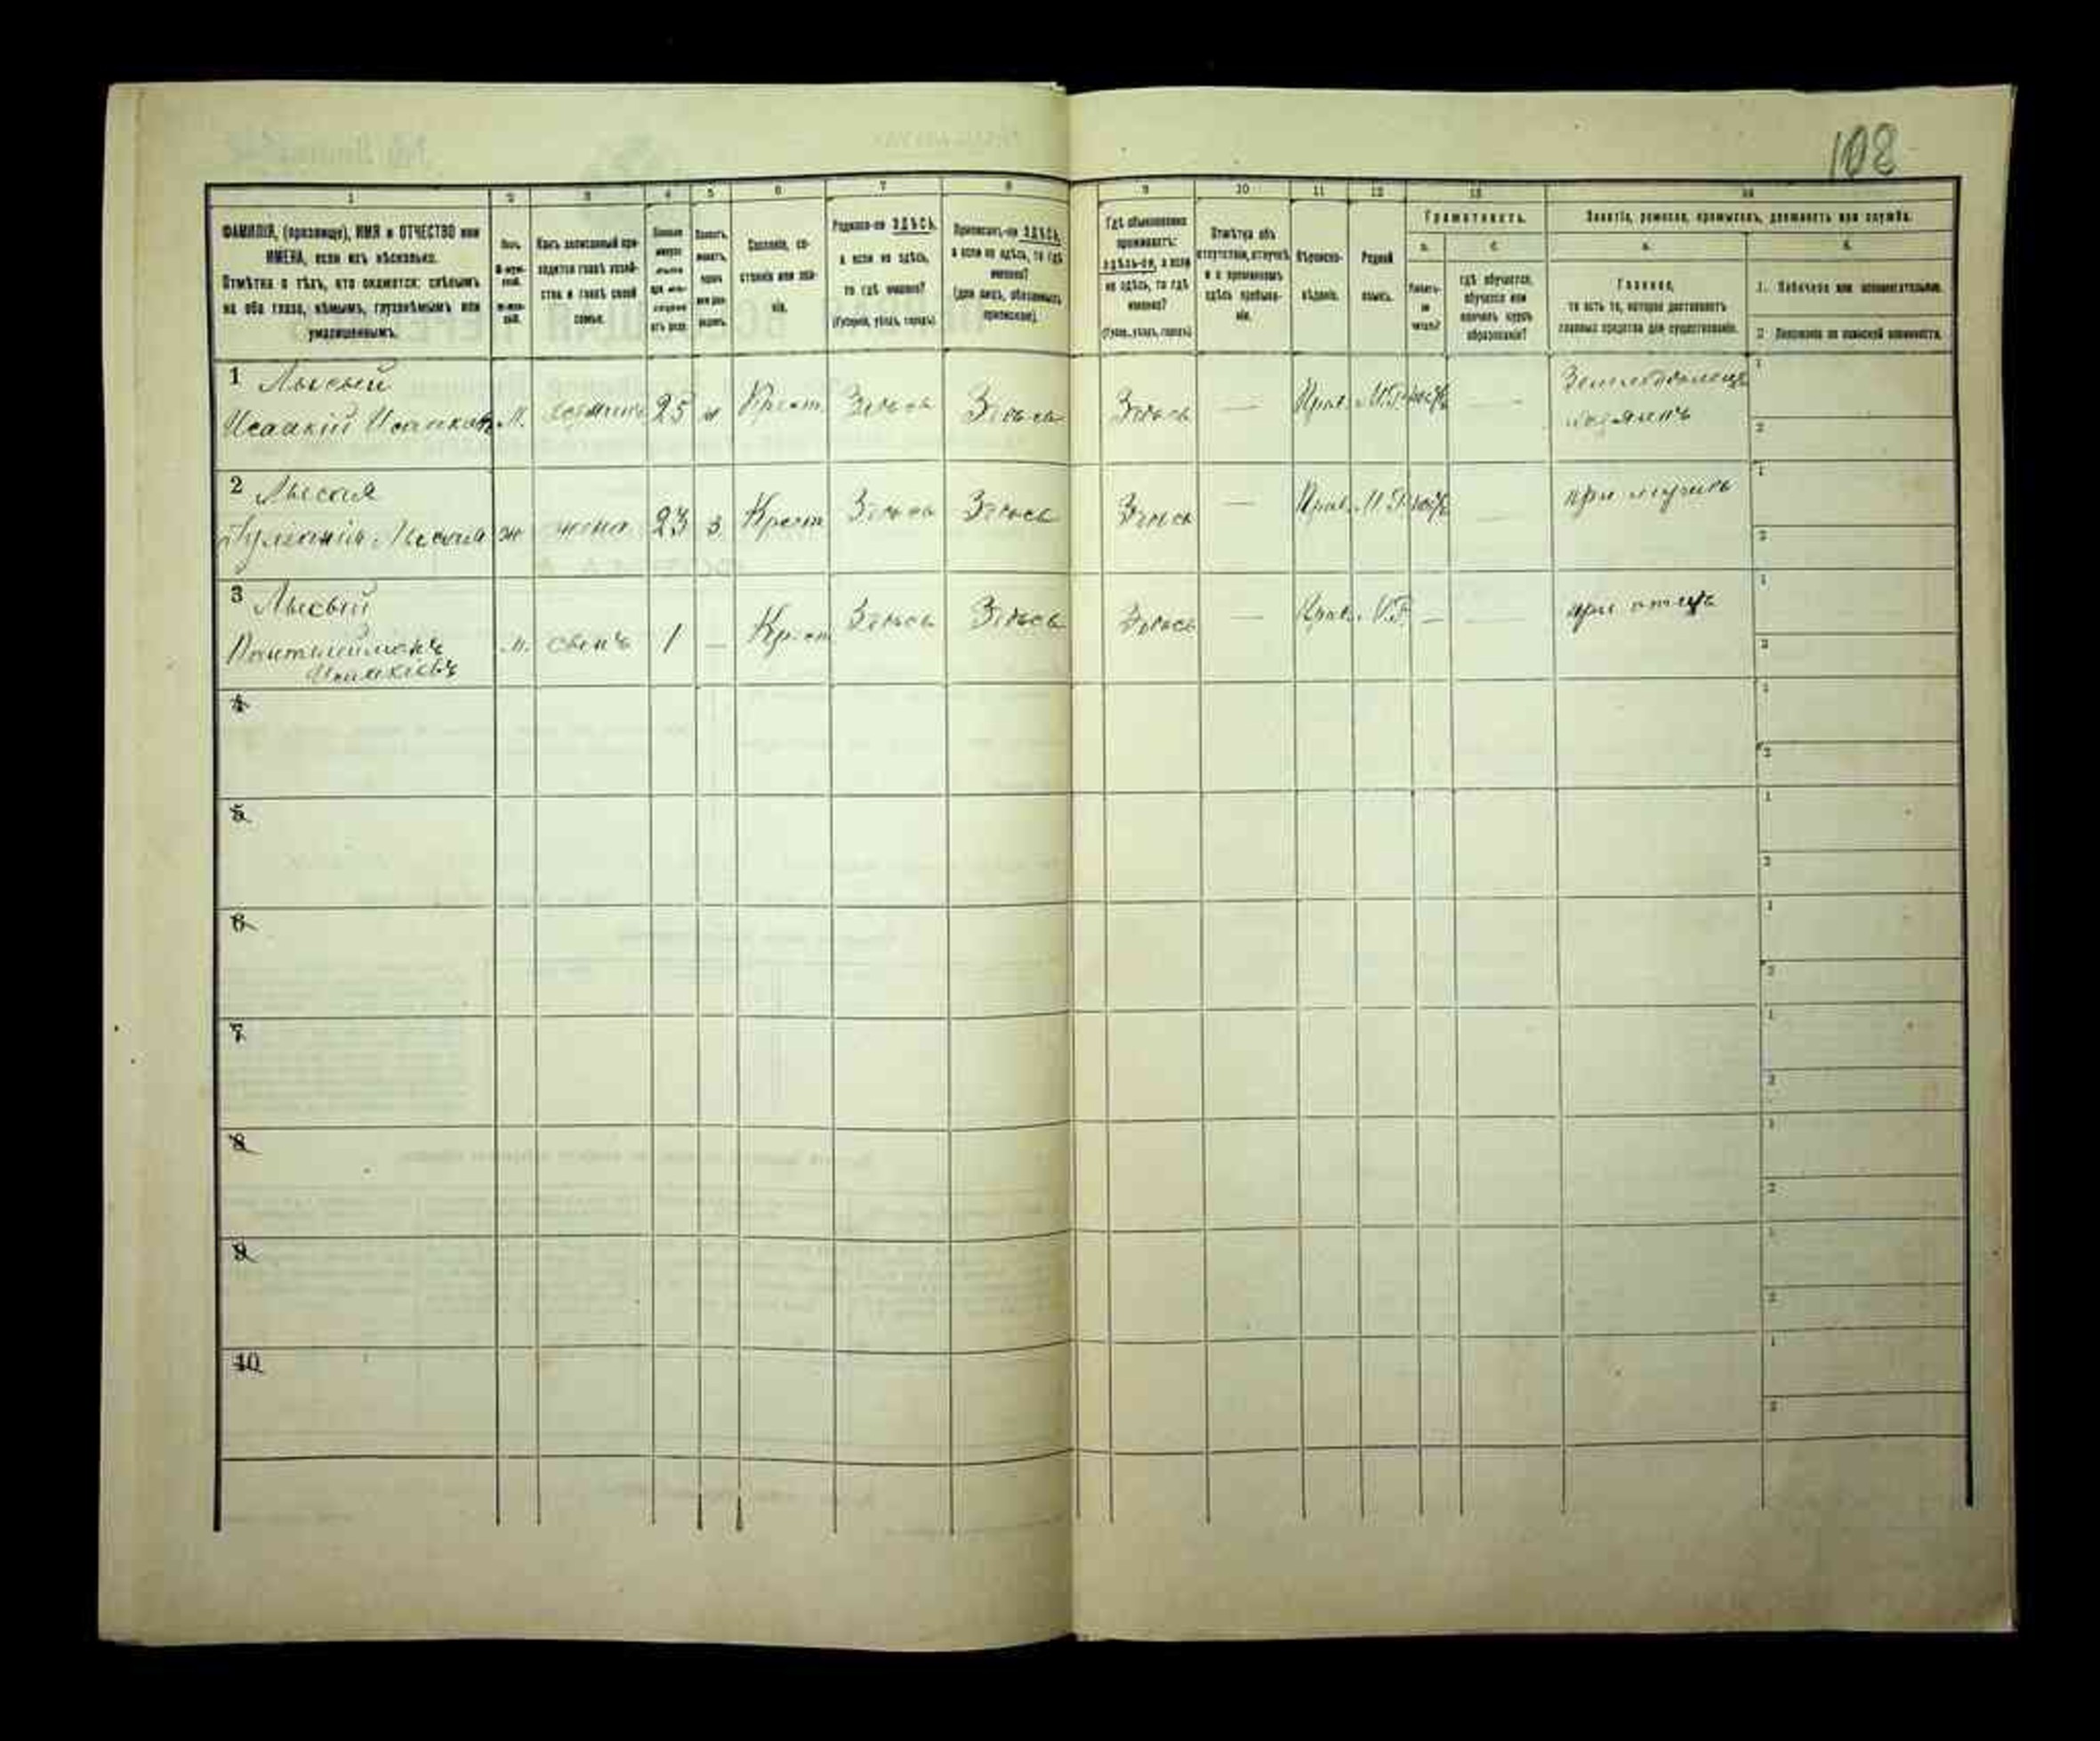 108
1 2 3 4 5 6 7 8 9 10 11 12 13 14
ФАМИЛІЯ, (прозвище), ИМЯ и ОТЧЕСТВО или
ИМЕНА, если ихъ нѣсколько.
Отмѣтка о тѣхъ, кто окажется: слѣпымъ
на оба глаза, нѣмымъ, глухонѣмымъ или
умалишеннымъ.
Полъ.
Какъ записанный при-
ходится главѣ хозяй-
ства и главѣ своей
семьи.
Сословіе, со-
стояніе или зва-
ніе.
Родился-ли ЗДѢСЬ,
а если не здѣсь,
то гдѣ именно?
(Губернія, уѣздъ, городъ).
Приписанъ-ли ЗДѢСЬ,
а если не здѣсь, то гдѣ
именно?
(для лицъ, обязанныхъ
припискою).
Гдѣ обыкновенно
проживаетъ:
здѣсь-ли, а если
не здѣсь, то гдѣ
именно?
(Губ., уѣздъ, городъ)
Отмѣтка объ
отсутствіи, отлучкѣ
и о временномъ
здѣсь пребыва-
ніи.
Вѣроиспо-
вѣданіе.
Родной
языкъ.
Грамотность.
а.
Умѣетъ-
ли
читать?
б.
гдѣ обучается,
обучался или
кончилъ курсъ
образованія?
Занятіе, ремесло, промыселъ, должность или служба.
а.
Главное,
то есть то, которое доставляетъ
главныя средства для существованія.
б.
1. Побочное или вспомогательное.
2. Положеніе по воинской повинности.
1 Лысый
Исаакій Исаакіевъ М. хозяинъ 25 ж Крест. Здѣсь Здѣсь Здѣсь — Прав. М.Р. нѣтъ — Земледѣлецъ
хозяинъ
1
2
2 Лысая
Лысая ж жена 23 з Крест Здѣсь Здѣсь Здѣсь — Прав. М.Р. нѣтъ — при мужѣ
1
2
3 Лысый
Пантелеймонъ
Исаакіевъ М. сынъ 1 — Крест Здѣсь Здѣсь Здѣсь — Прав. М.Р. — — при отцѣ
1
2
4
1
2
5
1
2
6
1
2
7
1
2
8
1
2
9
1
2
10
1
2